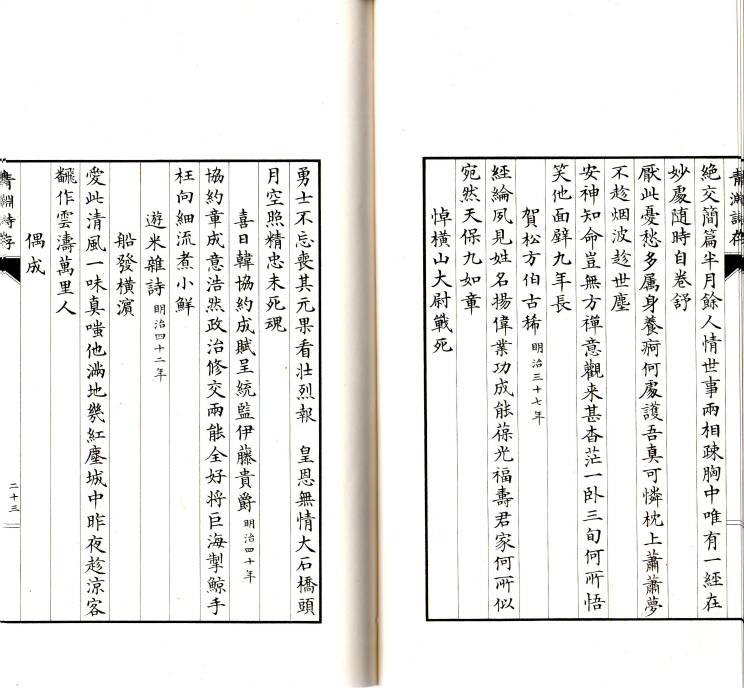 青淵詩存
絶交簡篇半月餘人情世事兩相疎胸中唯有一經在
妙處随時自卷舒
厭此憂愁多属身養痾何處護吾真可憐枕上蕭蕭夢
不趁烟波趁世塵
安神知命豈無方禪意觀来甚杳茫一卧三旬何所悟
笑他面壁九年長
賀松方伯古稀 明治三十七年
經綸夙見姓名揚偉業功成能葆光福壽君家何所似
宛然天保九如章
悼横山大尉戰死
勇士不忘喪其元果看壮烈報 皇恩無情大石橋頭
月空照精忠未死魂
喜日韓協約成賦呈統監伊藤貴爵 明治四十年
協約章成意浩然政治修交兩能全好将巨海掣鯨手
枉向細流煮小鮮
遊米雜詩 明治四十二年
船發横濱
愛此清風一味真嗤他満地幾紅塵城中昨夜趁涼客
飜作雲濤萬里人
偶成
青淵詩存
二十三